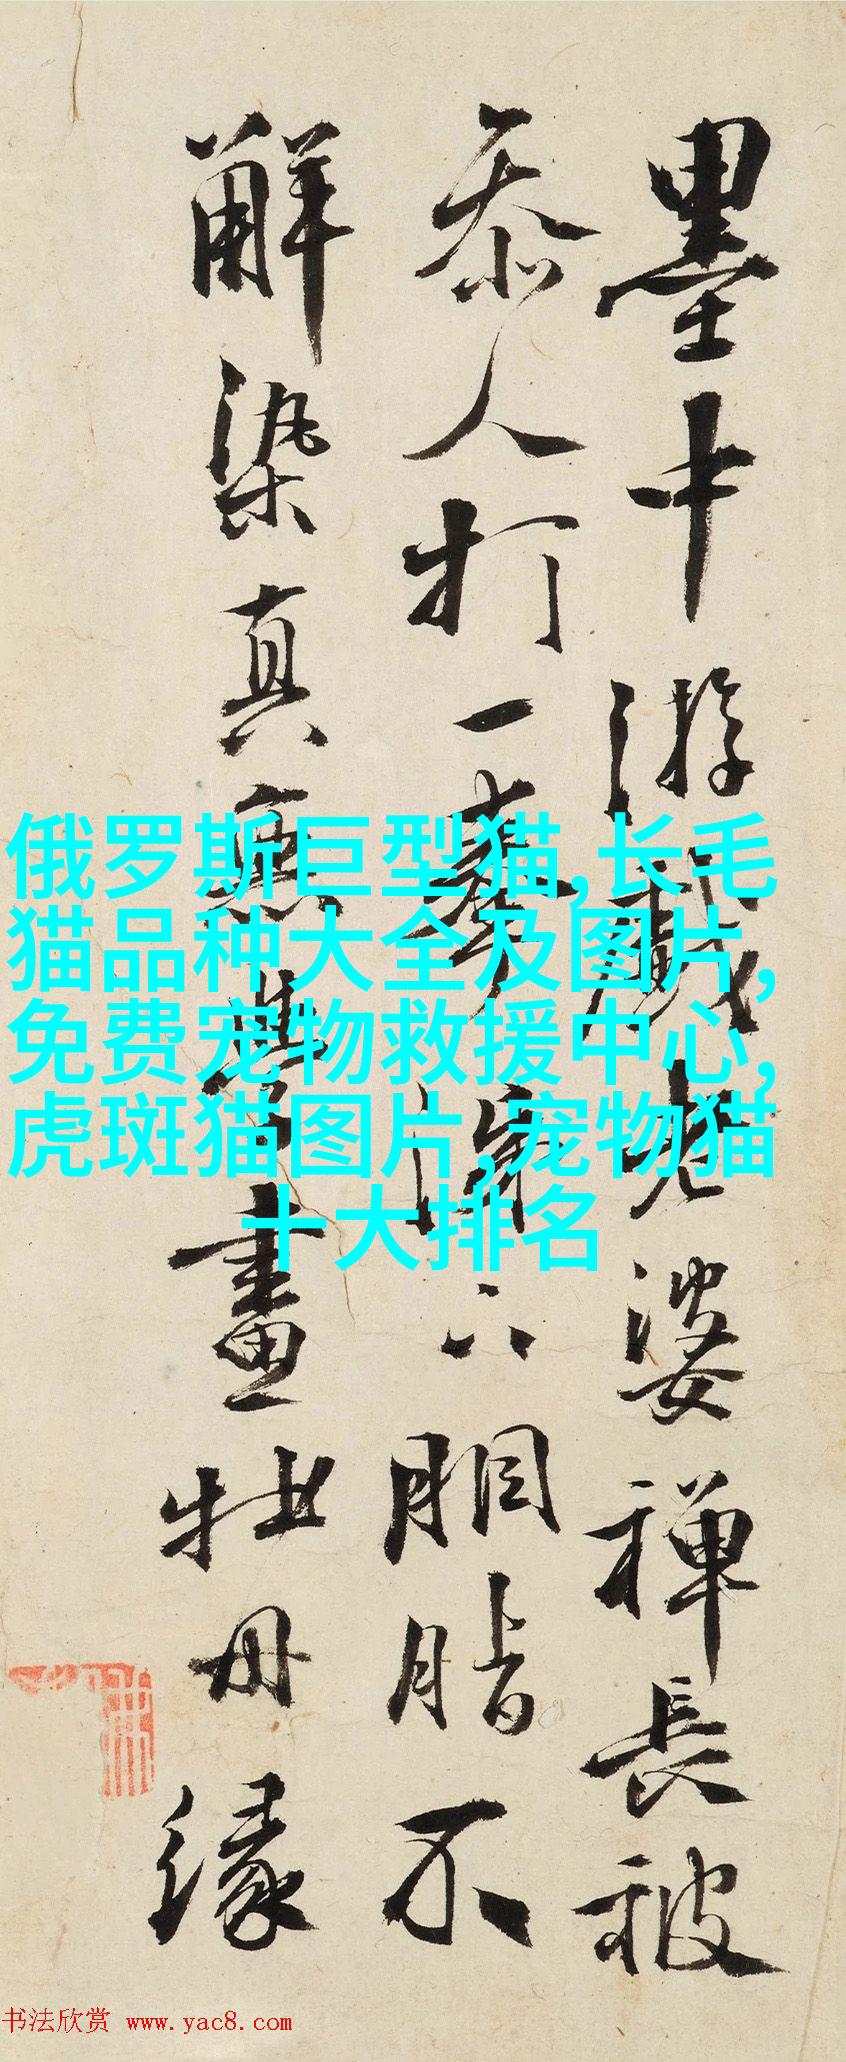 墨中游戲老婆禪長被
人打一拳下胭脂不
解染真無學畫牡丹緣
俄罗斯巨型猫,长毛
猫品种大全及图片,
免费宠物救援中心,
虎斑猫图片,宠物猫
十大排名
书法欣赏 www.yac8.com